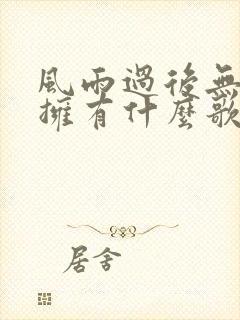 風雨過後無
擁有什麼歌
居舍